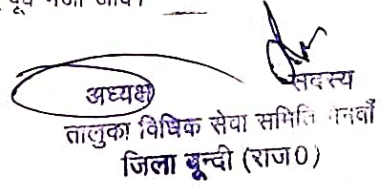 पूर्व भेजी जावे।
अध्यक्ष सदस्य
तालुका विधिक सेवा समिति नैनवाँ
जिला बून्दी (राज0)